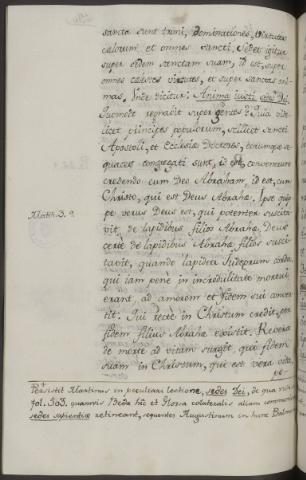 sancta sunt troni, dominationes, virtutes
cælorum et omnes sancti. Sedet igitur
super sedem sanctam suam, id est, super
omnes cælores virtutes, et super sanctas ani-
mas, Unde dicitur: Anima iusti sedes Dei.
Quomodo regnavit super gentes? Quia vide-
licet principes populorum, scilicet sancti
Apostoli, et Ecclesiæ Doctores, eorumque se-
quaces congregati sunt, id est, convenere
credendo cum Deo Abraham, id est, cum
Christo, qui est Deus Abrahæ. Ipse quip-
Matth. 3. 9.
pe verus Deus est, qui potenter suscita-
vit, de lapidibus filios Abrahæ. Deus
certe de lapidibus Abrahæ filios susci-
tavit, quando lapidea Iudæorum corda,
qui iam penè in incredulitate mortui
erant, ad amorem et fidem sui conver-
tit. Qui rectè in Christum credit, per
fidem filius Abrahæ existit. Revera
de morte ad vitam surgit, qui fidem
suam in Christum, qui est vera vita,
Persistit Martinus in peculiari lectione, sedes Dei, de qua
fol. 303. quamvis Beda hîc et Glossa colateralis aliam communem
sedes sapientiæ retineant, sequentes Augustinum in hunc